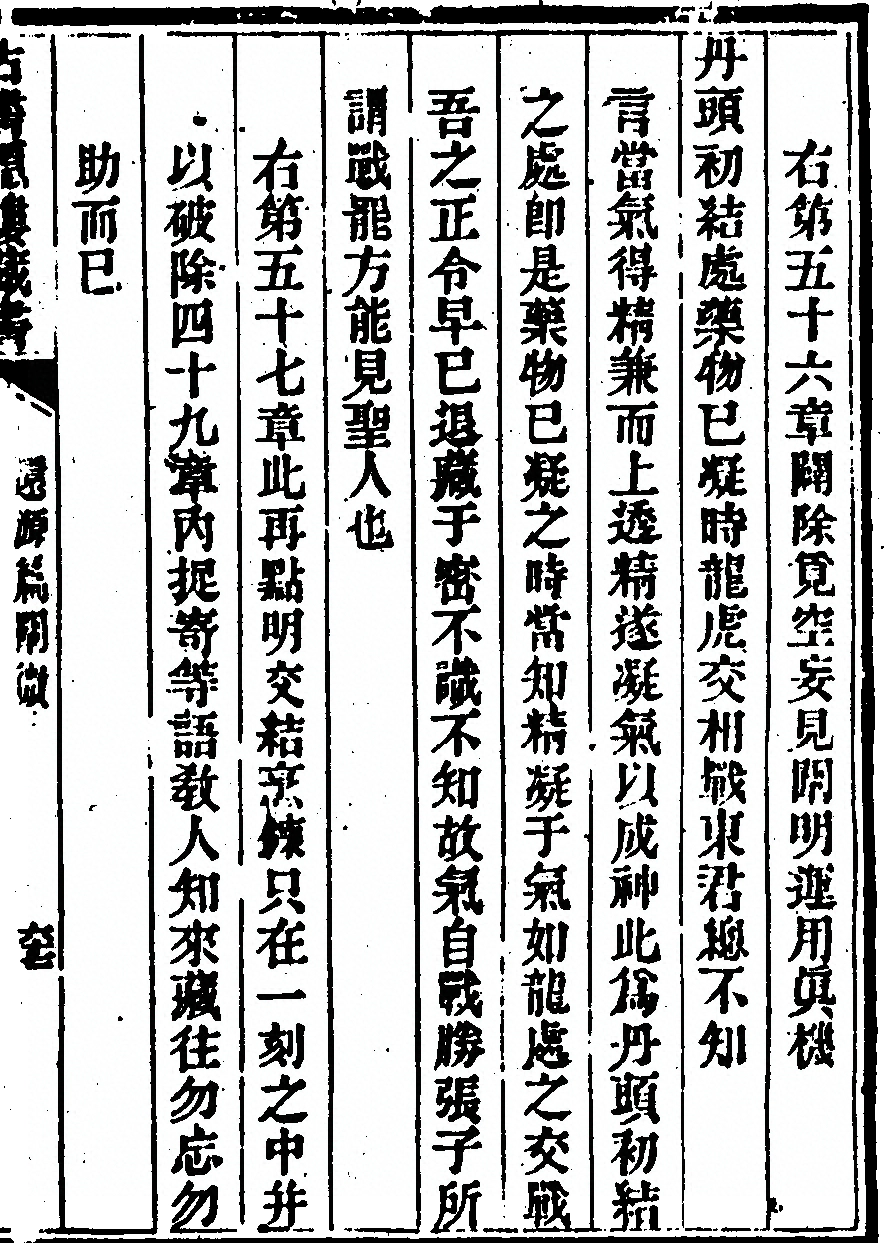 右第五十六章闢除覓空妄見闡明運用眞機
丹頭初結處藥物已凝時龍虎交相戰東君總不知
言當氣得精兼而上透精遂凝氣以成神此爲丹頭初結
之處卽是藥物已凝之時當知精凝于氣如龍處之交戰
吾之正令早已退藏于密不識不知故氣自戰勝張子所
謂戰罷方能見聖人也
右第五十七章此再點明交結烹鍊只在一刻之中幷
以破除四十九章內捉寄等語敎人知來藏往勿忘勿
助而已
古書隱樓藏書
還源篇闡微